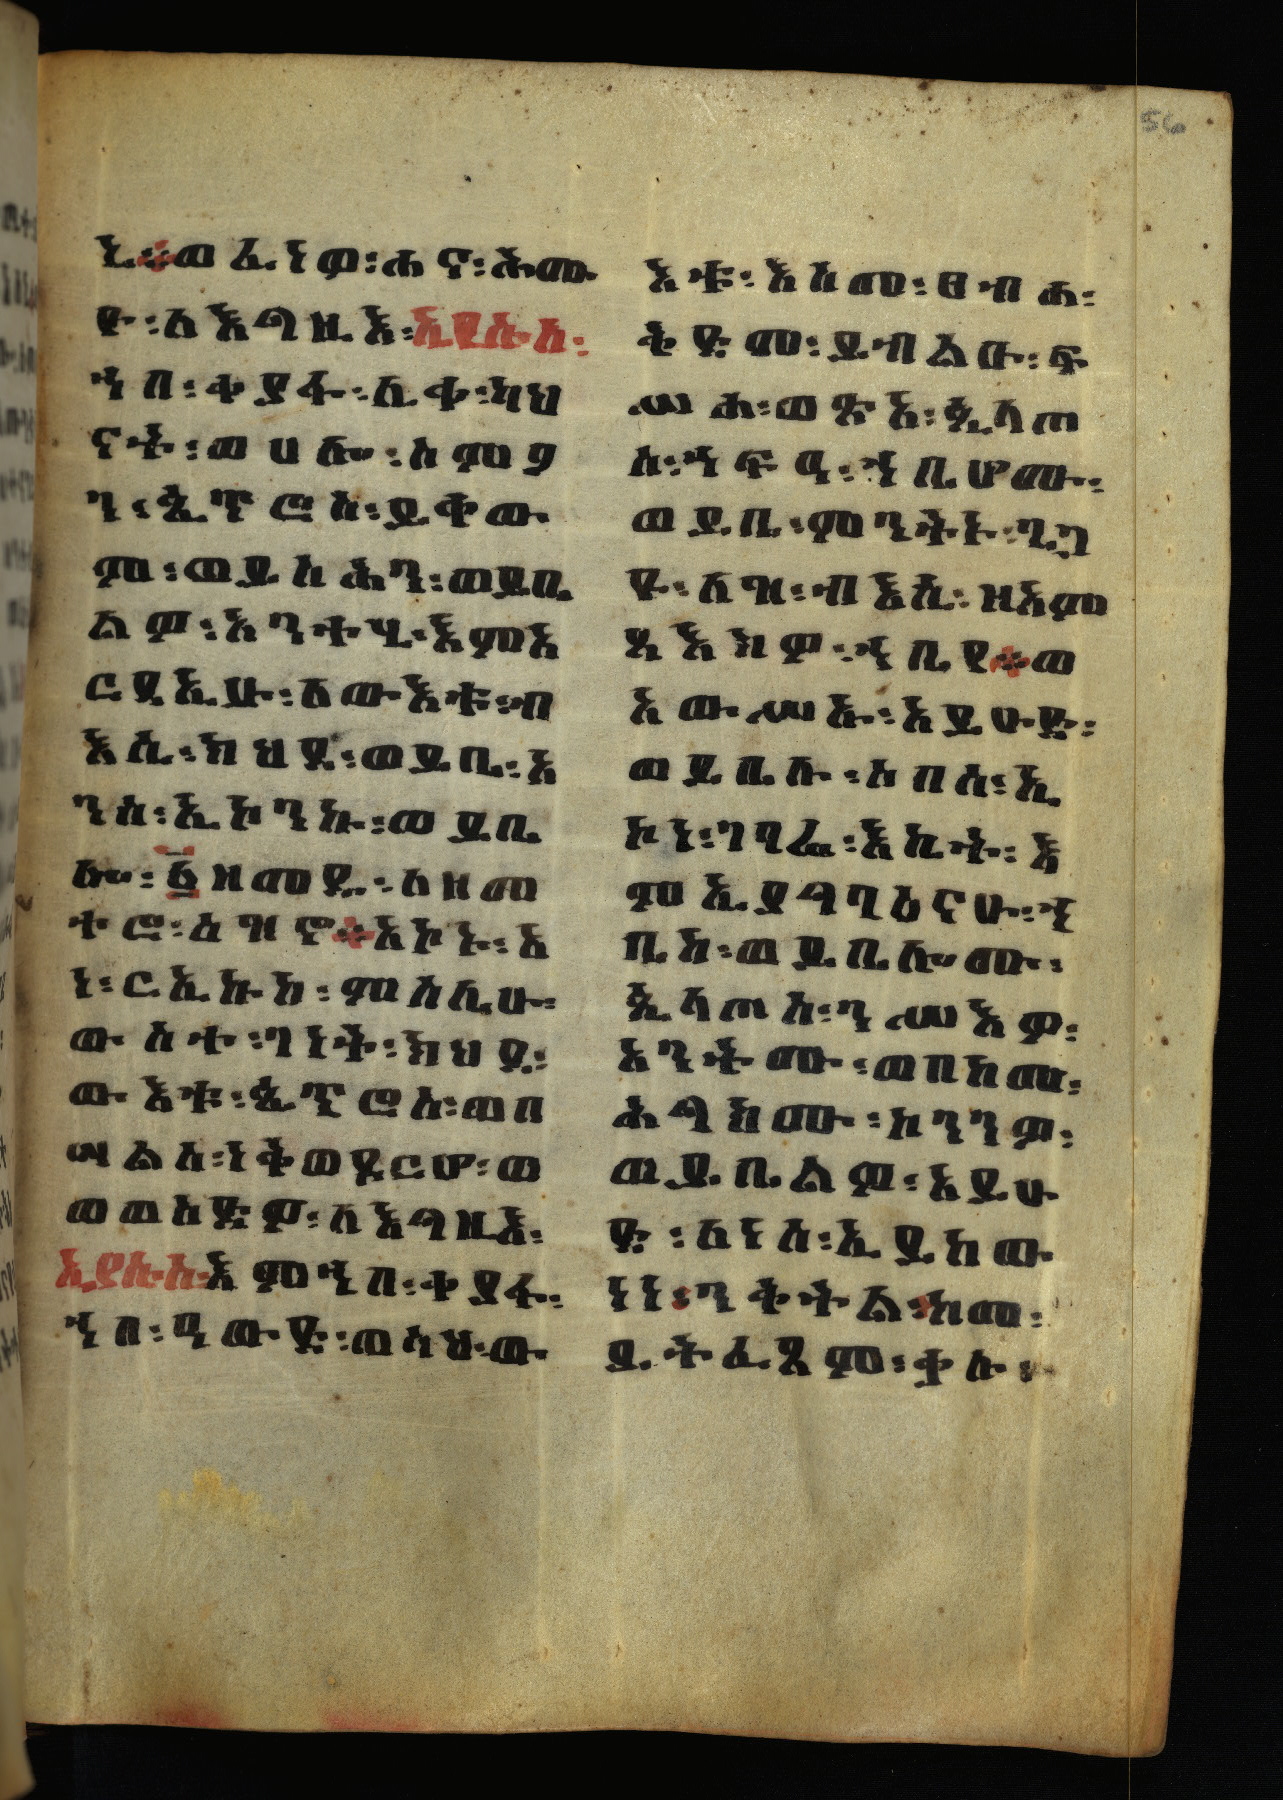 ኒ፨ወፈነዎ፡ሐና፡ሕሙ
ዮ፡ለእግዚእ፡ኢየሱስ፡
ኀበ፡ቀያፋ፡ሊቀ፡ካህ
ናት፡ወሀሎ፡ስምዖ
ን፡ጴጥሮስ፡ይቀው
ም፡ወይስሕን፡ወይቤ
ልዎ፡አንተሂ፡እምእ
ርዳኢሁ፡ለውእቱ፡ብ
እሲ፡ክህደ፡ወይቤ፡እ
ንሰ፡ኢኮንኩ፡ወይቤ
ሎ፡፩ዘመዱ፡ለዘመ
ተሮ፡እዝኖ፨አኮኑ፡አ
ነ፡ርኢኩከ፡ምስሌሁ፡
ውስተ፡ገነት፡ክህደ፡
ውእቱ፡ጴጥሮስ፡ወበ
ሣልስ፡ነቀወ ደርሆ፡ወ
ወወስድዎ፡ለእግዚእ፡
ኢየሱስ፡እምኀበ፡ቀያፋ፡
ኀበ፡ዓውድ፡ወላህ፡ው
እቱ፡እስመ፡ፀብሐ፡
ትድመ፡ይብልዑ፡ፍ
ሥሐ፡ወጽአ፡ጲላጦ
ስ፡ኀፍዓ፡ኀቤሆሙ፡
ወይቤ፡ምንትት፡ጌጋ
ዮ፡ለዝ፡ብእሲ፡ዘአም
ጻእክዎ፡ኀቤየ፨ወ
አውሥኡ፡አይሁድ፡
ወይቤሉ፡ሶበሰ፡ኢ
ኮነ፡ገባሬ፡እኪት፡እ
ምኢያግባዕናሁ፡ኀ
ቤከ፡ወይቤሎሙ፡
ጲላጦስ፡ንሥእዎ፡
አንትሙ፡ወበከመ፡
ሕግክሙ፡ኰንንዎ፡
ወይቤልዎ፡አይሁ
ድ፡ለነሰ፡ኢይከው
ነነ፡ንቅትል፡ከመ፡
ይትፈጸም፡ቃሉ፡